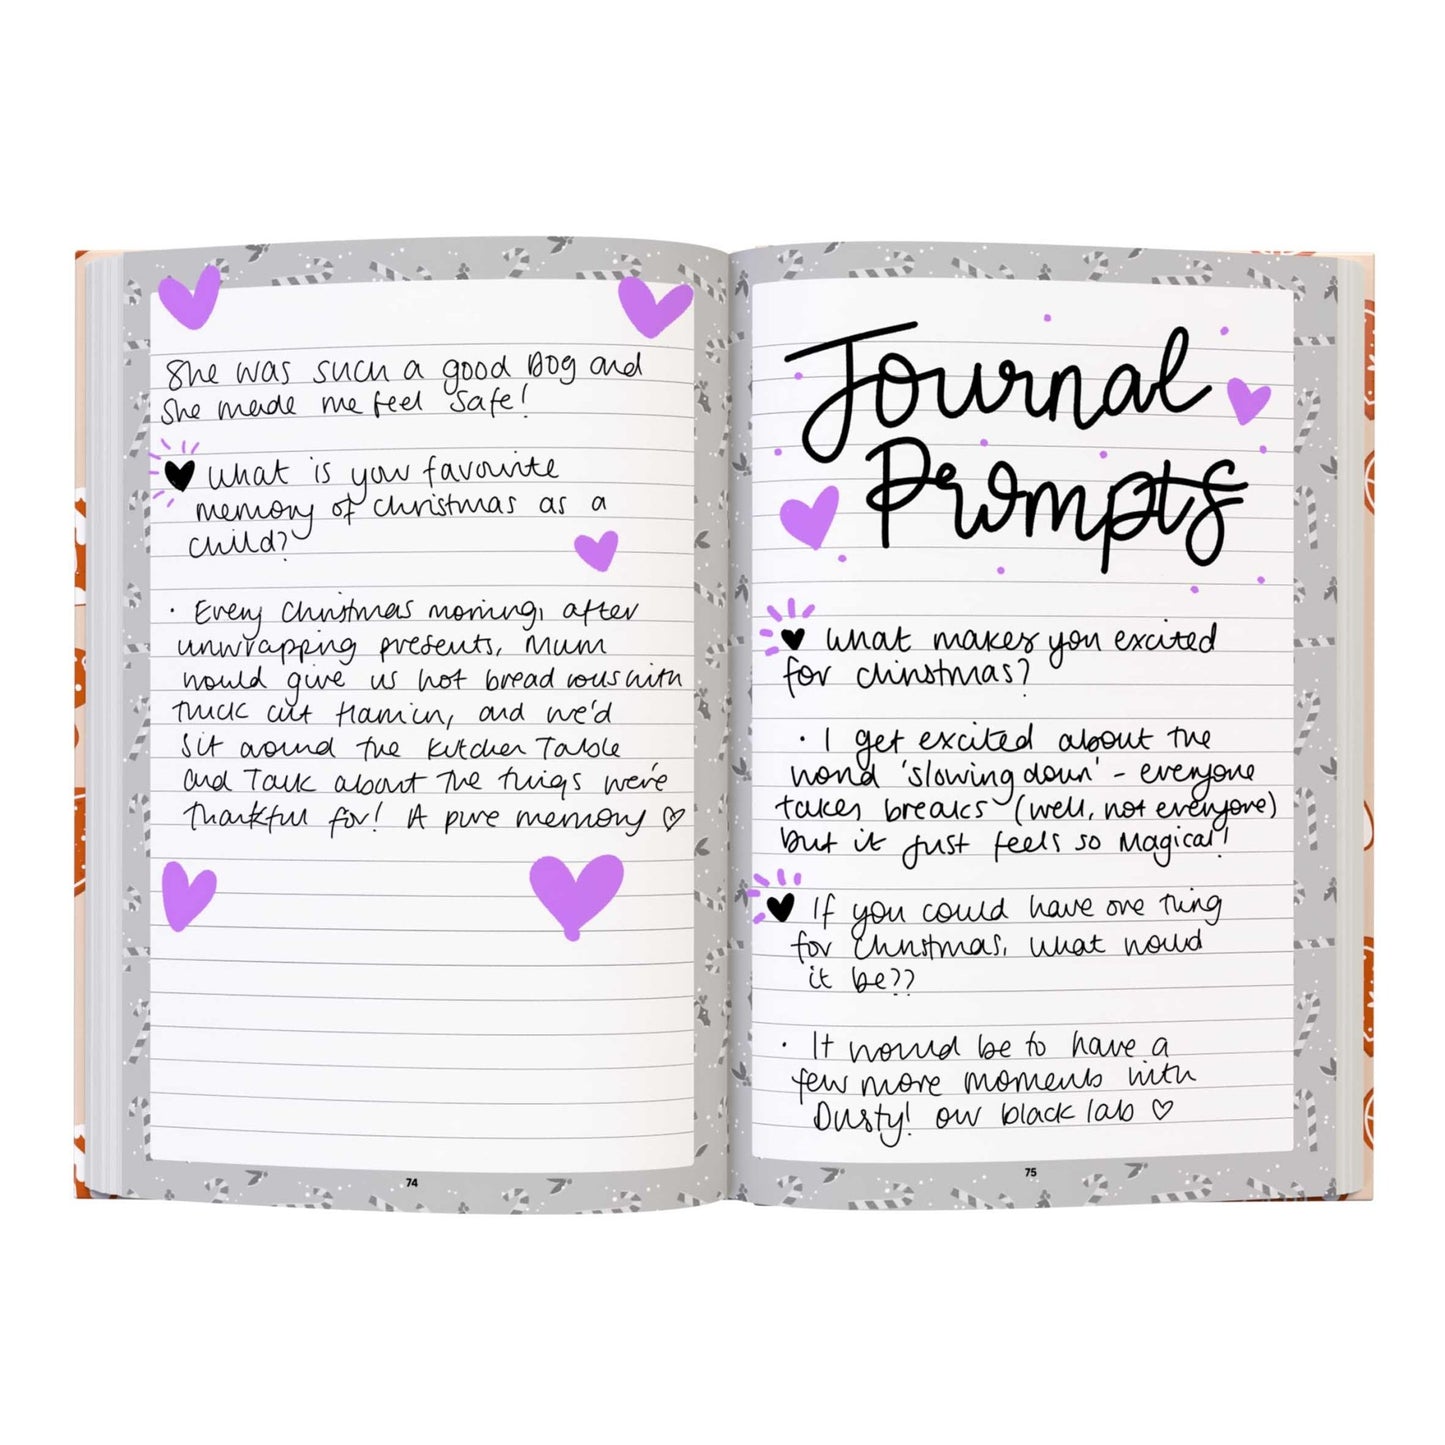 She was such a good Dog and
she made me feel safe!
What is your favourite
memory of Christmas as a
child?
· Every Christmas morning, after
unwrapping presents, Mum
would give us hot bread rolls with
thick cut Ham in, and we'd
sit around the kitchen Table
and Talk about The things we're
Thankful for! A pure memory ♡
74
Journal
Prompts
What makes you excited
for Christmas?
· I get excited about the
world 'slowing down' - everyone
takes breaks (well, not everyone)
but it just feels so Magical!
If you could have one thing
for Christmas, what would
it be??
· It would be to have a
few more moments with
Dusty! our black lab ♡
75